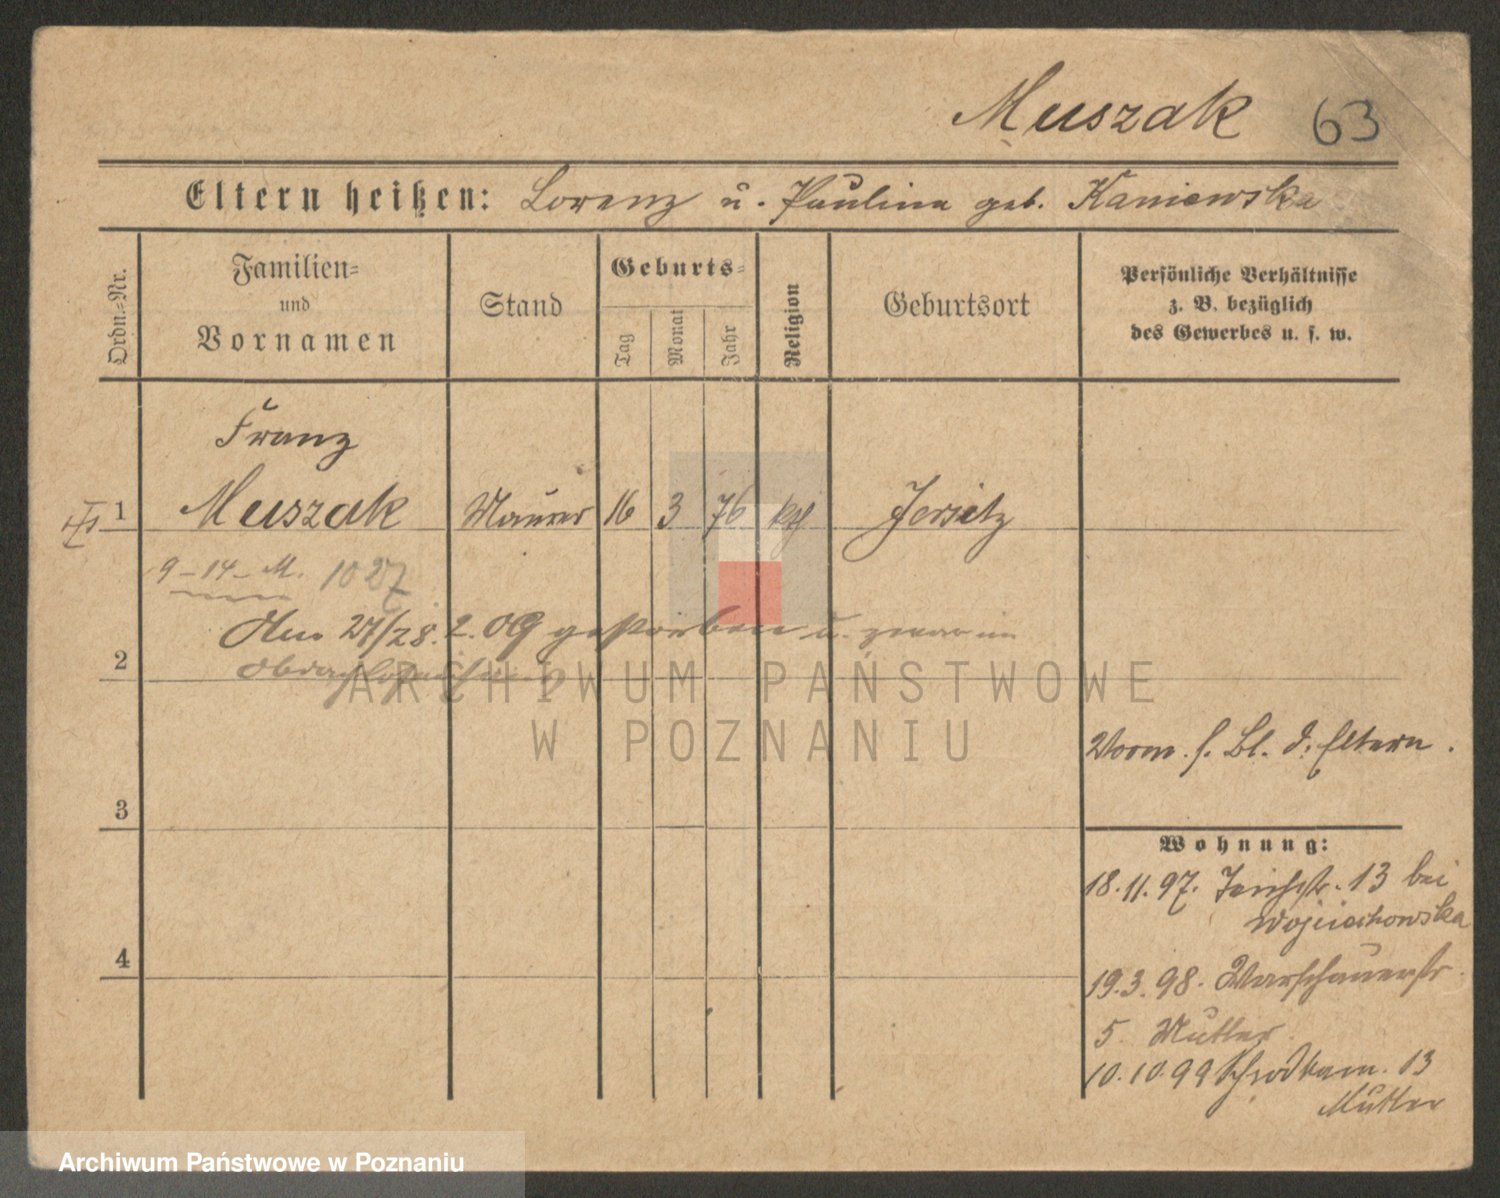 Muszak 63
Eltern heißen: Lorenz u. Paulina geb. Kaniewska
Ordn.-Nr.
Familien-
und
Vornamen
Stand
Geburts-
Tag
Monat
Jahr
Religion
Geburtsort
Persönliche Verhältnisse
z. B. bezüglich
des Gewerbes u. s. w.
Franz
1 Muszak Maurer 16 3 76 kth Jersitz
9-14-M. 1027
Am 27/28. 2. 09 gestorben u. zwar im
2
ARCHIWUM PAŃSTWOWE
W POZNANIU
Vorm. s. Bl. d. Eltern.
3
Wohnung:
18.11.97. 13 bei
Wojciechowska
4
19.3.98. Warschauerstr.
5. Mutter
10.10.99 13
Mutter
Archiwum Państwowe w Poznaniu